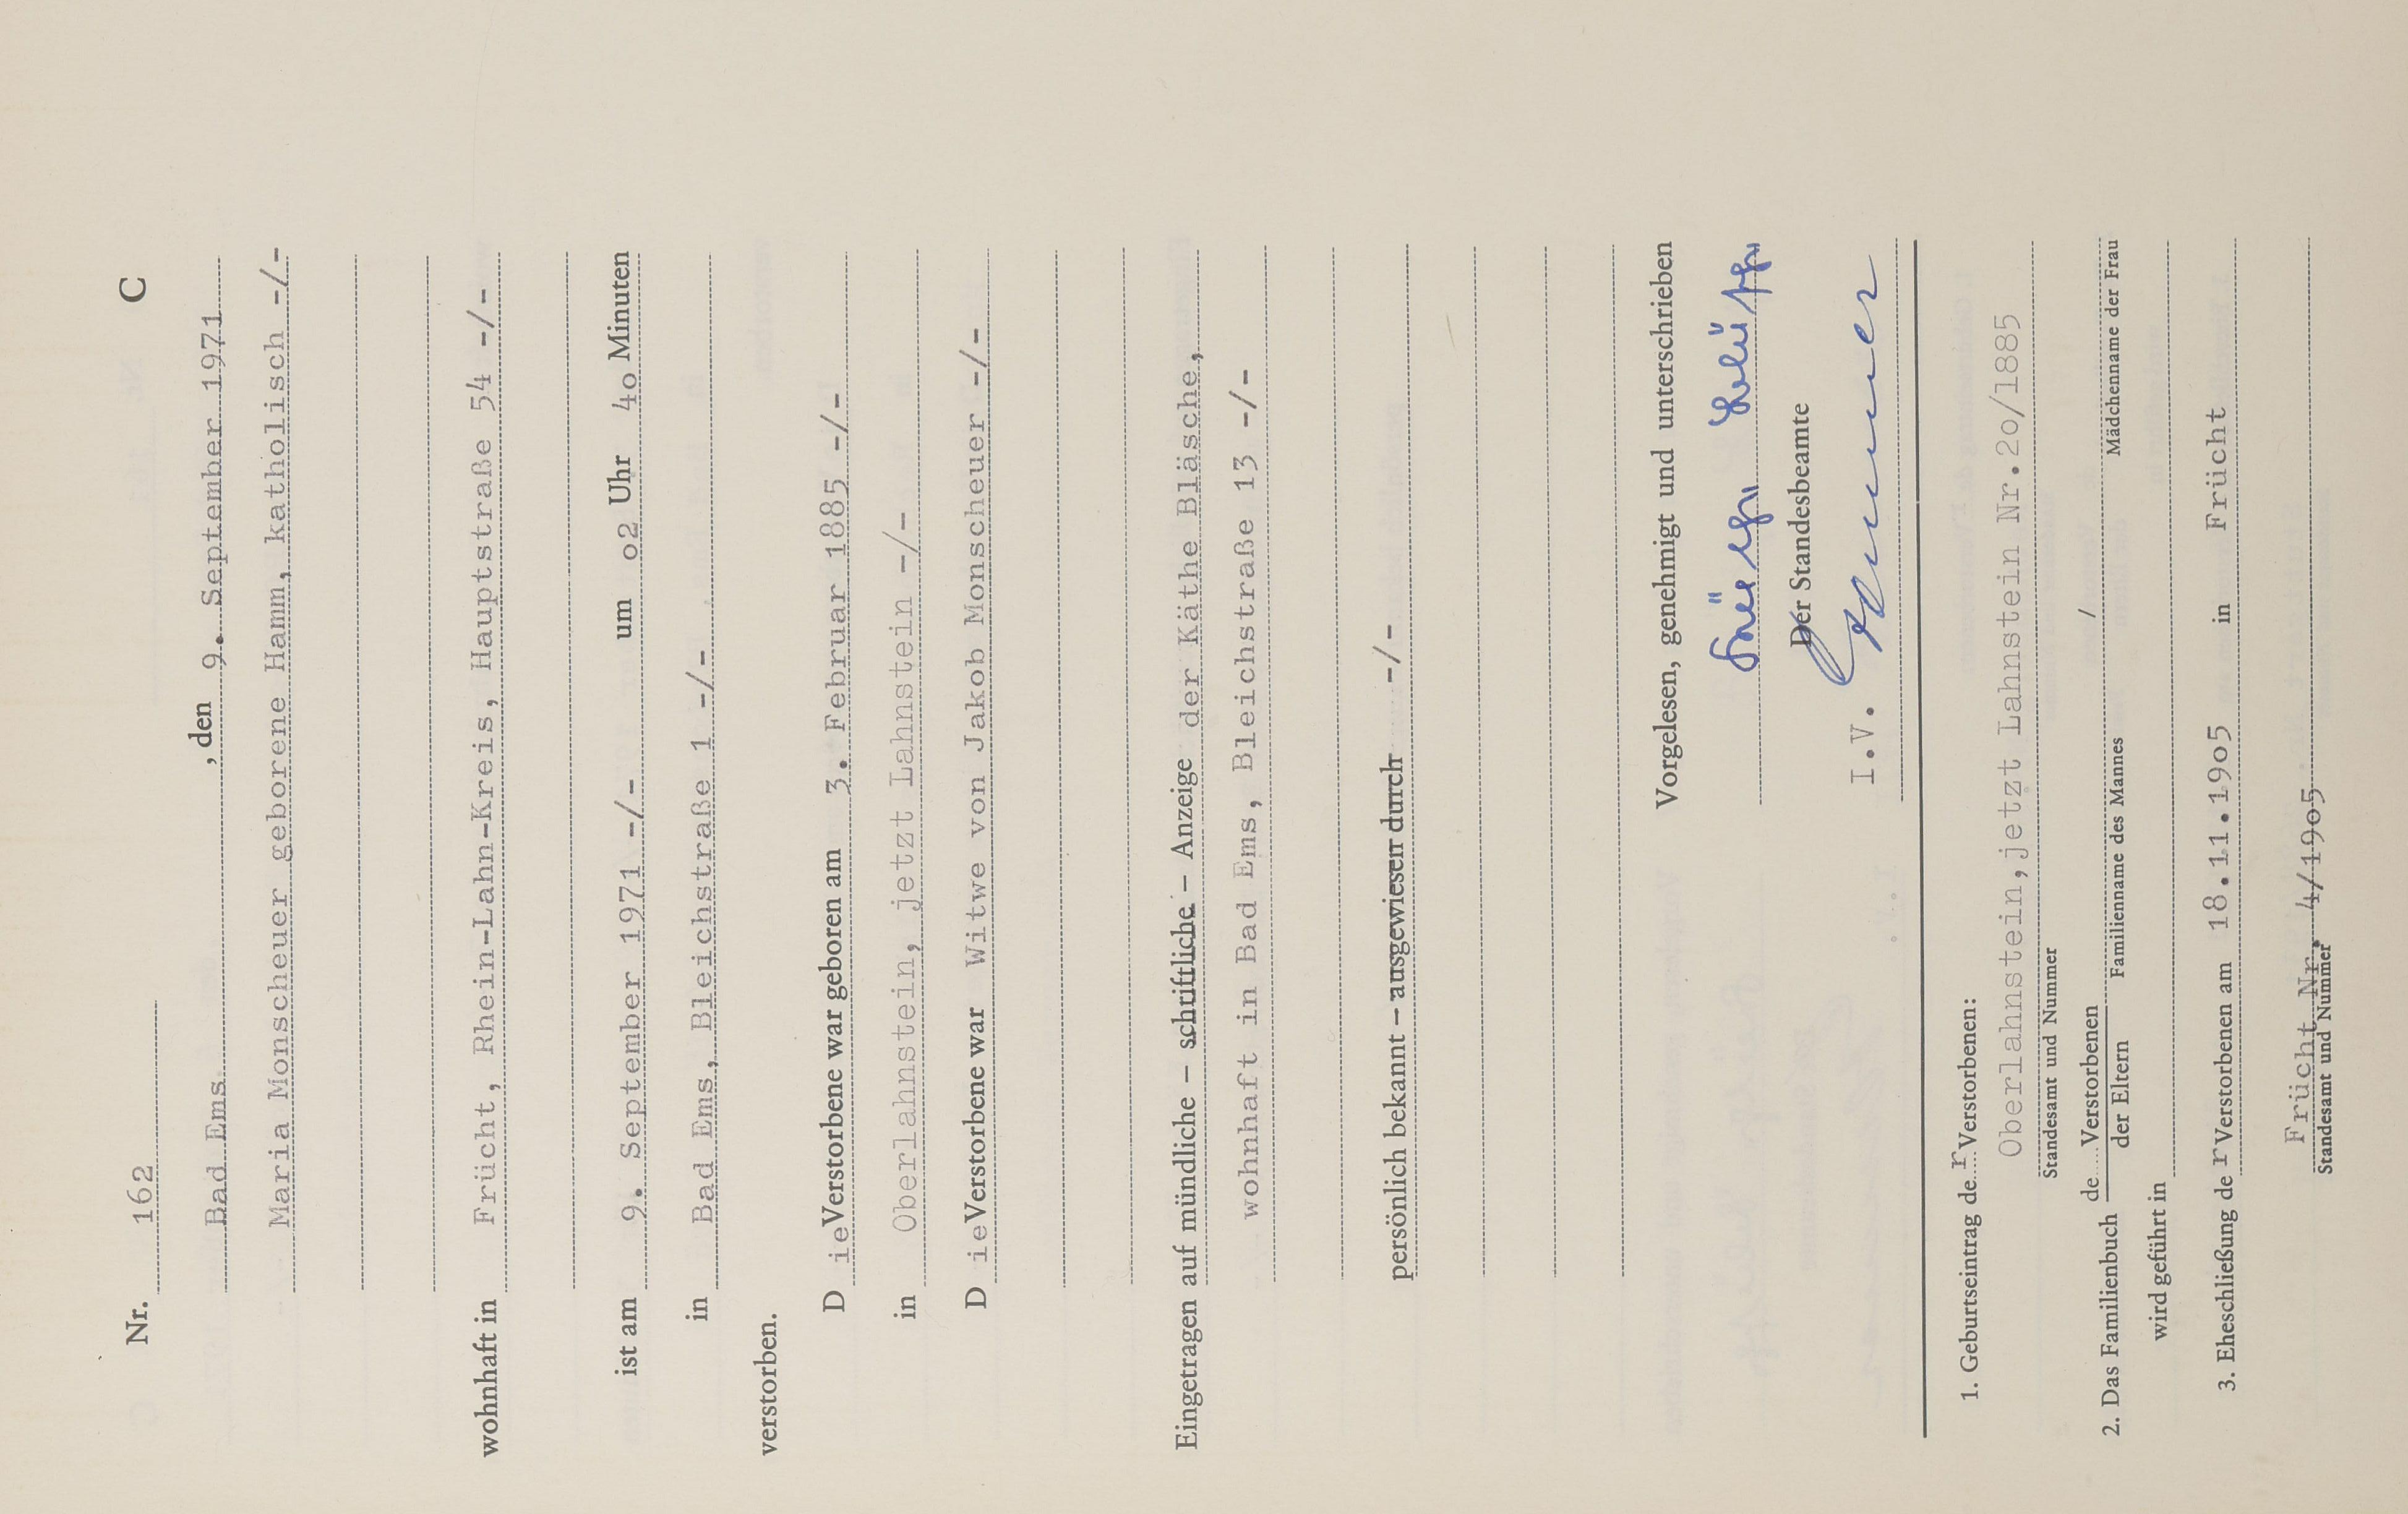 Nr. 162 C
Bad Ems, den 9. September 1971
Maria Monscheuer geborene Hamm, katholisch -/-
wohnhaft in Frücht, Rhein-Lahn-Kreis, Hauptstraße 54 -/-
ist am 9. September 1971 -/- um o2 Uhr 4o Minuten
in Bad Ems, Bleichstraße 1 -/-
verstorben.
D ie Verstorbene war geboren am 3. Februar 1885 -/-
in Oberlahnstein, jetzt Lahnstein -/-
D ie Verstorbene war Witwe von Jakob Monscheuer -/-
Eingetragen auf mündliche – schriftliche – Anzeige der Käthe Bläsche,
wohnhaft in Bad Ems, Bleichstraße 13 -/-
persönlich bekannt – ausgewiesen durch -/-
Vorgelesen, genehmigt und unterschrieben
Der Standesbeamte
I.V.
1. Geburtseintrag de r Verstorbenen:
Oberlahnstein,jetzt Lahnstein Nr.2o/1885
Standesamt und Nummer
2. Das Familienbuch de Verstorbenen /
der Eltern Familienname des Mannes Mädchenname der Frau
wird geführt in
3. Eheschließung de r Verstorbenen am 18.11.19o5 in Frücht
Frücht Nr. 4/19o5
Standesamt und Nummer